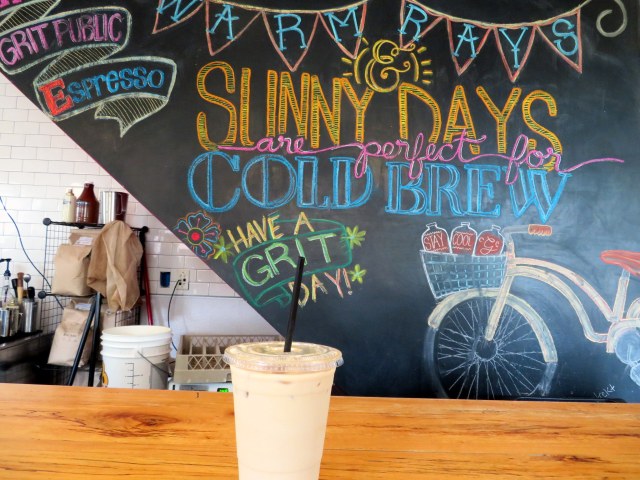 GRIT PUBLIC
Espresso
WARM RAYS
&
SUNNY DAYS
are perfect for
COLD BREW
HAVE A
GRIT
DAY!
STAY COOL